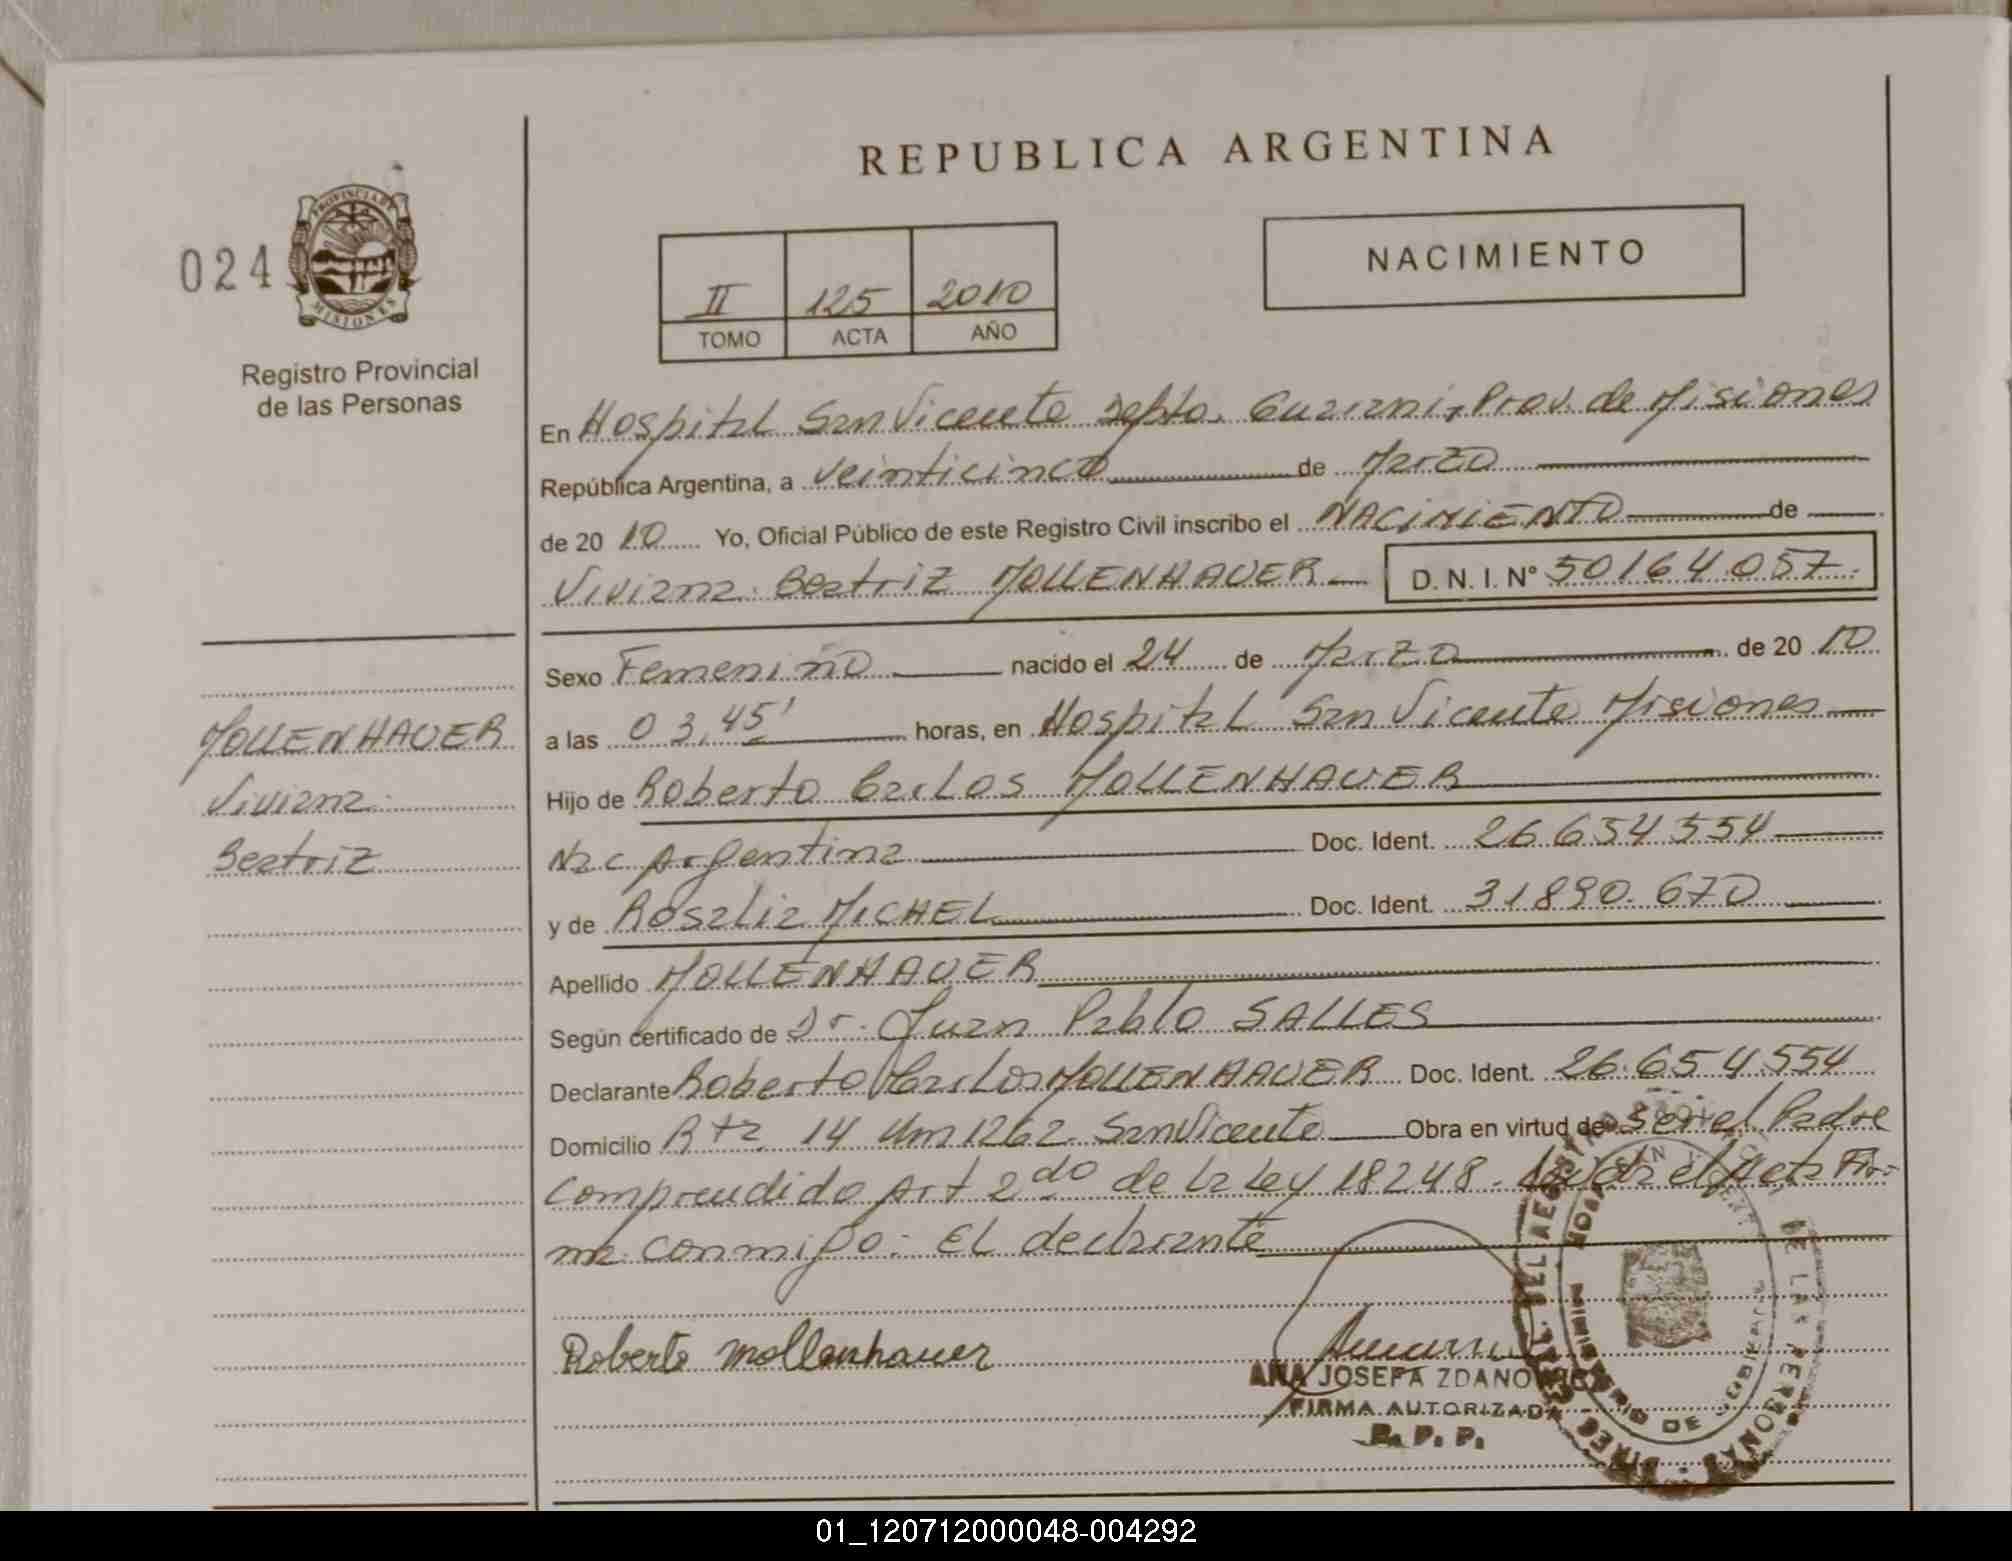 REPUBLICA ARGENTINA
024
PROVINCIA DE
MISIONES
Registro Provincial
de las Personas
II 125 2010
TOMO ACTA AÑO
NACIMIENTO
En Hospital San Vicente Depto. Guarani, Prov. de Misiones
República Argentina, a veinticinco de Marzo
de 2010 Yo, Oficial Público de este Registro Civil inscribo el NACIMIENTO de
Viviana Beatriz MOLLENHAUER D.N.I. Nº 50164.057
Sexo Femenino nacido el 24 de Marzo de 2010
a las 03,45' horas, en Hospital San Vicente Misiones
Hijo de Roberto Carlos MOLLENHAUER
Nac Argentina Doc. Ident. 26.654.554
y de Rosalia MICHEL Doc. Ident. 31890.670
Apellido MOLLENHAUER
Según certificado de Dr. Juan Pablo SALLES
Declarante Roberto Carlos MOLLENHAUER Doc. Ident. 26.654.554
Domicilio Rta 14 Km 1262 San Vicente Obra en virtud de ser el Padre
Comprendido Art 2do de la Ley 18248. Leida el Acta Fir-
ma conmigo: El declarante
MOLLENHAUER
Viviana
Beatriz
Roberto Mollenhauer
ANA JOSEFA ZDANO
FIRMA AUTORIZADA
R. P. P.
DE LAS PERSONAS
MINISTERIO DE GOBIERNO
01_120712000048-004292